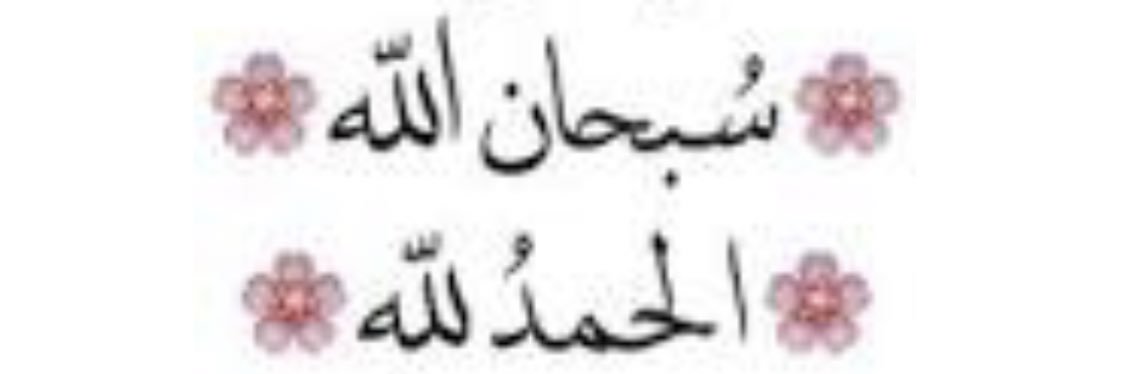 🌸 سُبحان الله 🌸
🌸 الحمدُ لله 🌸